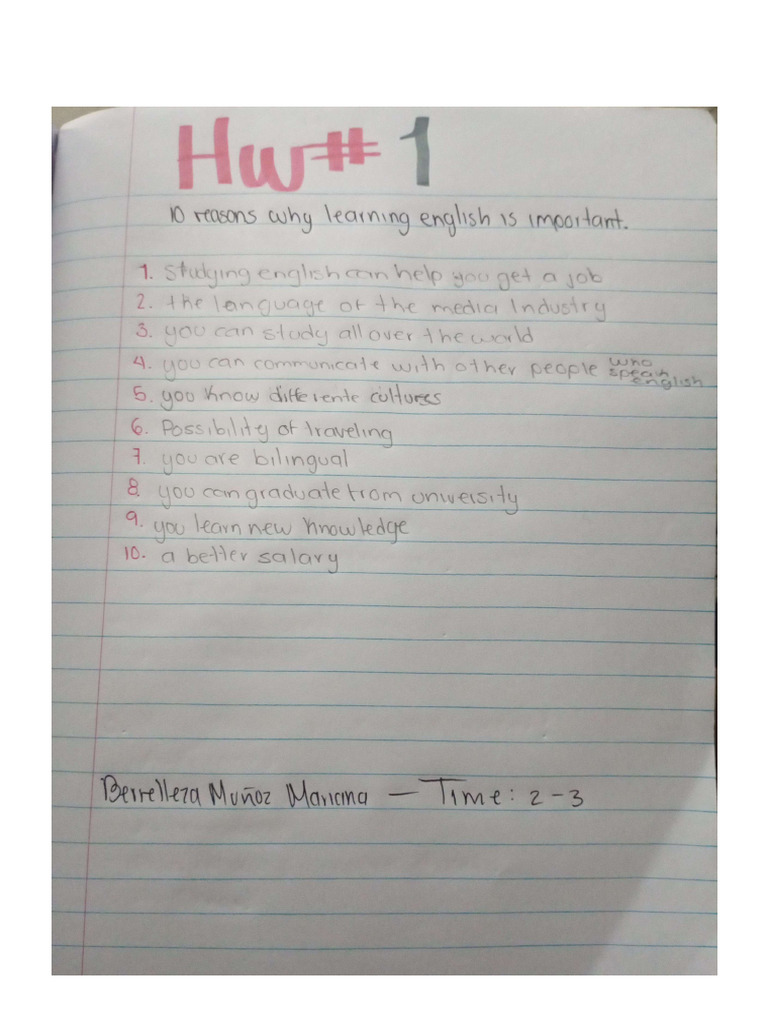 Hw# 1
10 reasons why learning english is important.
1. Studying english can help you get a job
2. the language of the media Industry
3. you can study all over the world
4. you can communicate with other people who speach english
5. you know differente cultures
6. Possibility of traveling
7. you are bilingual
8. you can graduate from university
9. you learn new knowledge
10. a better salary
Berrelleza Muñoz Mariana — Time: 2-3